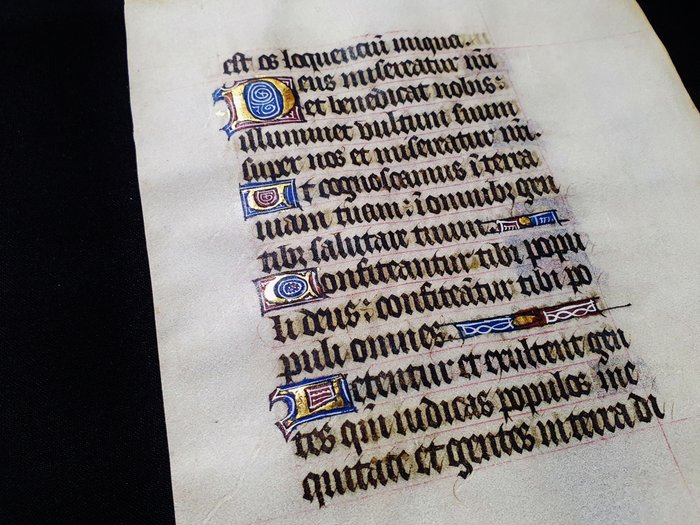 est os loquenciū iniqua.
Deus misereatur nr̄i
et benedicat nobis:
illuminet vultum suum
super nos et misereatur nr̄i.
Ut cognoscamus ī terra
uiam tuam: ī omnibꝫ gen
tibꝫ salutare tuum
Confiteantur tibi popu
li deus: confiteātur tibi po
puli omnes
Letentur et exultent gen
tes qm̄ iudicas populos ine
quitate et gentes in terra di